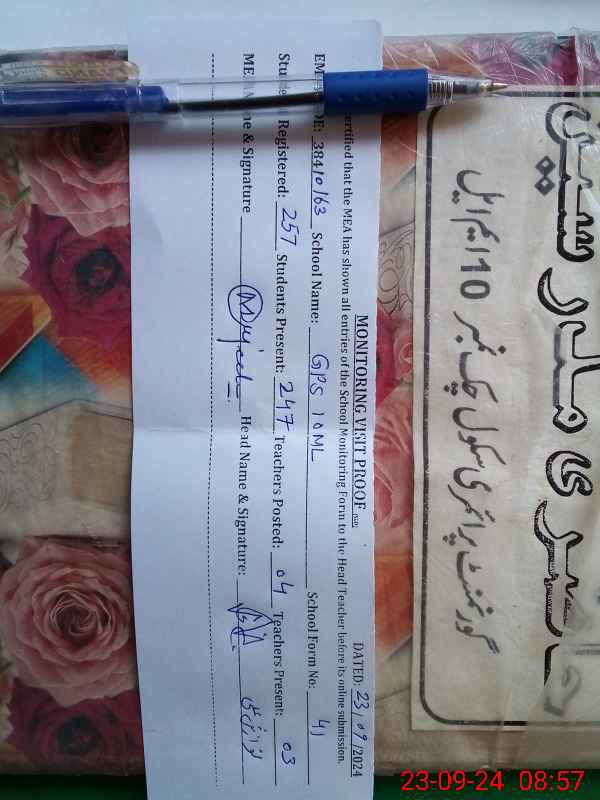 MONITORING VISIT PROOF
DATED: 23/09/2024
ertified that the MEA has shown all entries of the School Monitoring Form to the Head Teacher before its online submission.
EM DE: 38410163 School Name: GPS 10ML School Form No: 41
Registered: 257 Students Present: 247 Teachers Posted: 04 Teachers Present: 03
ME & Signature Head Name & Signature:
حاضری مدرسین
گورنمنٹ پرائمری سکول چک نمبر 10 ایم ایل
23-09-24 08:57